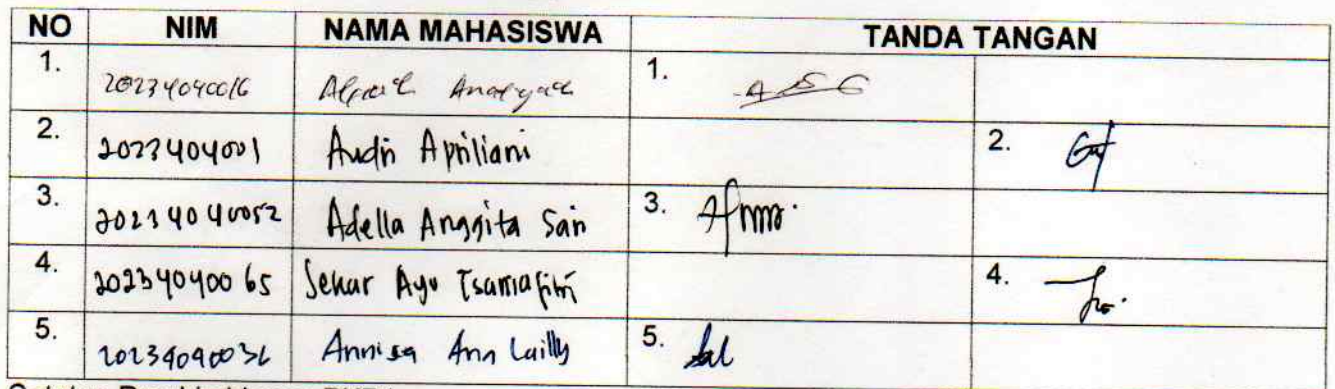 NO NIM NAMA MAHASISWA TANDA TANGAN
1. 20234040016 1.
2. 2023404001 Audri Apriliani 2.
3. 20234040052 Adella Anggita Sari 3.
4. 20234040065 Sekar Ayu Tsamafitri 4.
5. 20234040036 Annisa Ann Lailly 5.